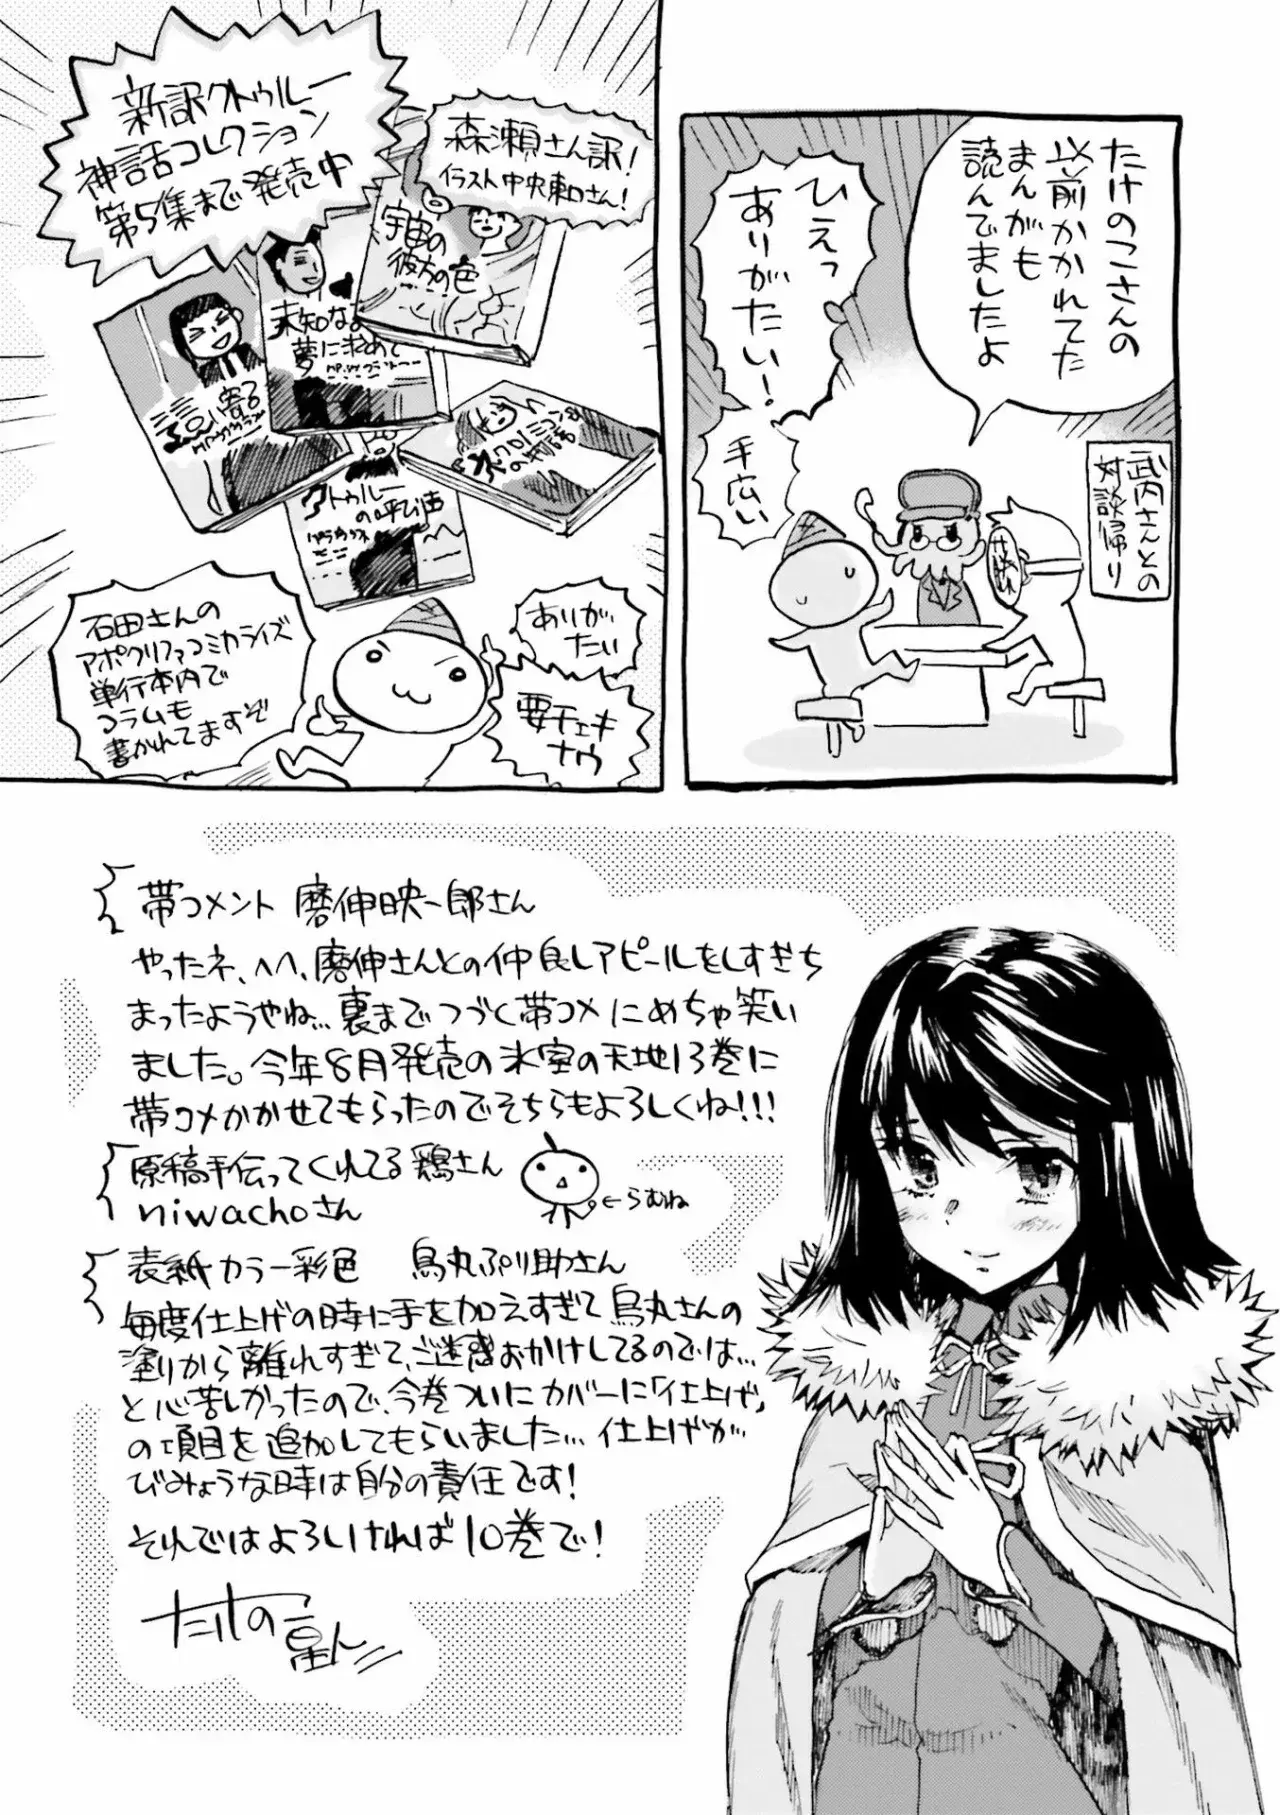 武内さんとの
対談帰り
たけのこさんの
以前かかれてた
まんがも
読んでましたよ
ひえっ
ありがたい!
手広い
新訳クトゥルー
神話コレクション
第5集まで発売中
森瀬さん訳!
イラスト中央東口さん!
宇宙の
彼方の色
未知なる
夢に求めて
這い寄る
ネクロノミコン
の物語
クトゥルー
の呼び声
石田さんの
アポクリファコミカライズ
単行本内で
コラムも
書かれてますぞ
ありがたい
要チェキ
ナウ
帯コメント 磨伸映一郎さん
やったネ、へへ、磨伸さんとの仲良しアピールをしすぎち
まったようやね…裏までつづく帯コメにめちゃ笑い
ました。今年8月発売の氷室の天地13巻に
帯コメかかせてもらったのでそちらもよろしくね!!!
原稿手伝ってくれてる鶏さん
niwachoさん
←らむね
表紙カラー彩色 烏丸ぷり助さん
毎度仕上げの時に手を加えすぎて烏丸さんの
塗りから離れすぎて、ご迷惑おかけしてるのでは…
と心苦しかったので、今巻ついにカバーに「仕上げ」
の項目を追加してもらいました…仕上げが
びみょうな時は自分の責任です!
それではよろしければ10巻で!
たけのこ
星人